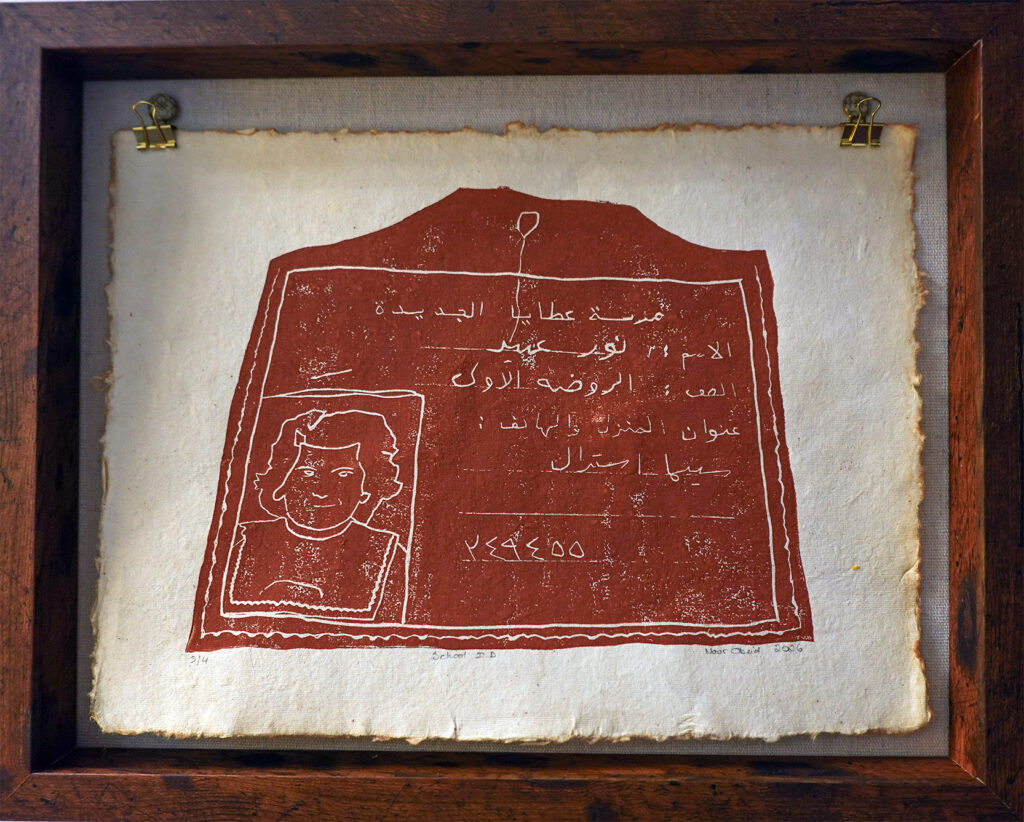 مدرسة عطايا الجديدة
الاسم : نور عبيد
الصف : الروضه الاولى
عنوان المنزل والهاتف :
سينما استرال
٢٤٩٤٥٥
2/4 School I.D Noor Obeid 2026